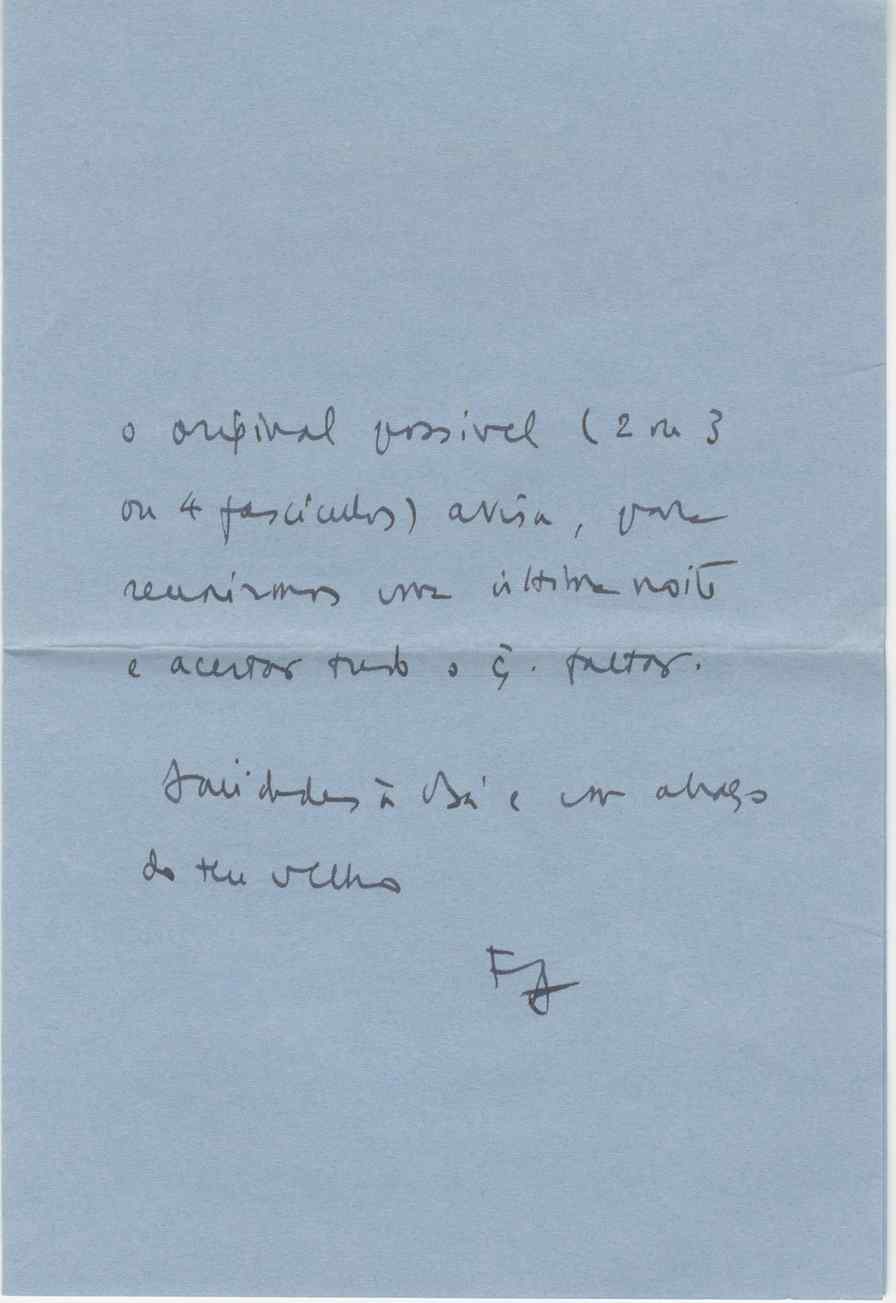 o original possivel (2 ou 3
ou 4 fascículos) avisa, para
reunirmos uma última noite
e acertar tudo o q. faltar.
Saudades à Bá e um abraço
do teu velho
F